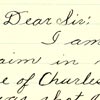 Dear Sir:
I am
aim in
e of Charles